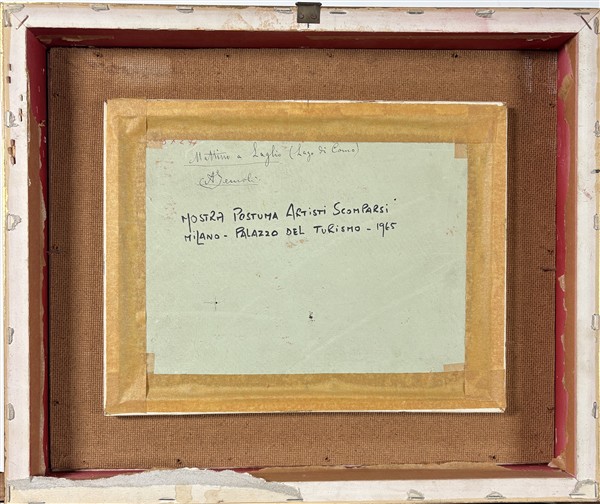 Mattino a Laglio (Lago di Como)
MOSTRA POSTUMA ARTISTI SCOMPARSI
MILANO - PALAZZO DEL TURISMO - 1965